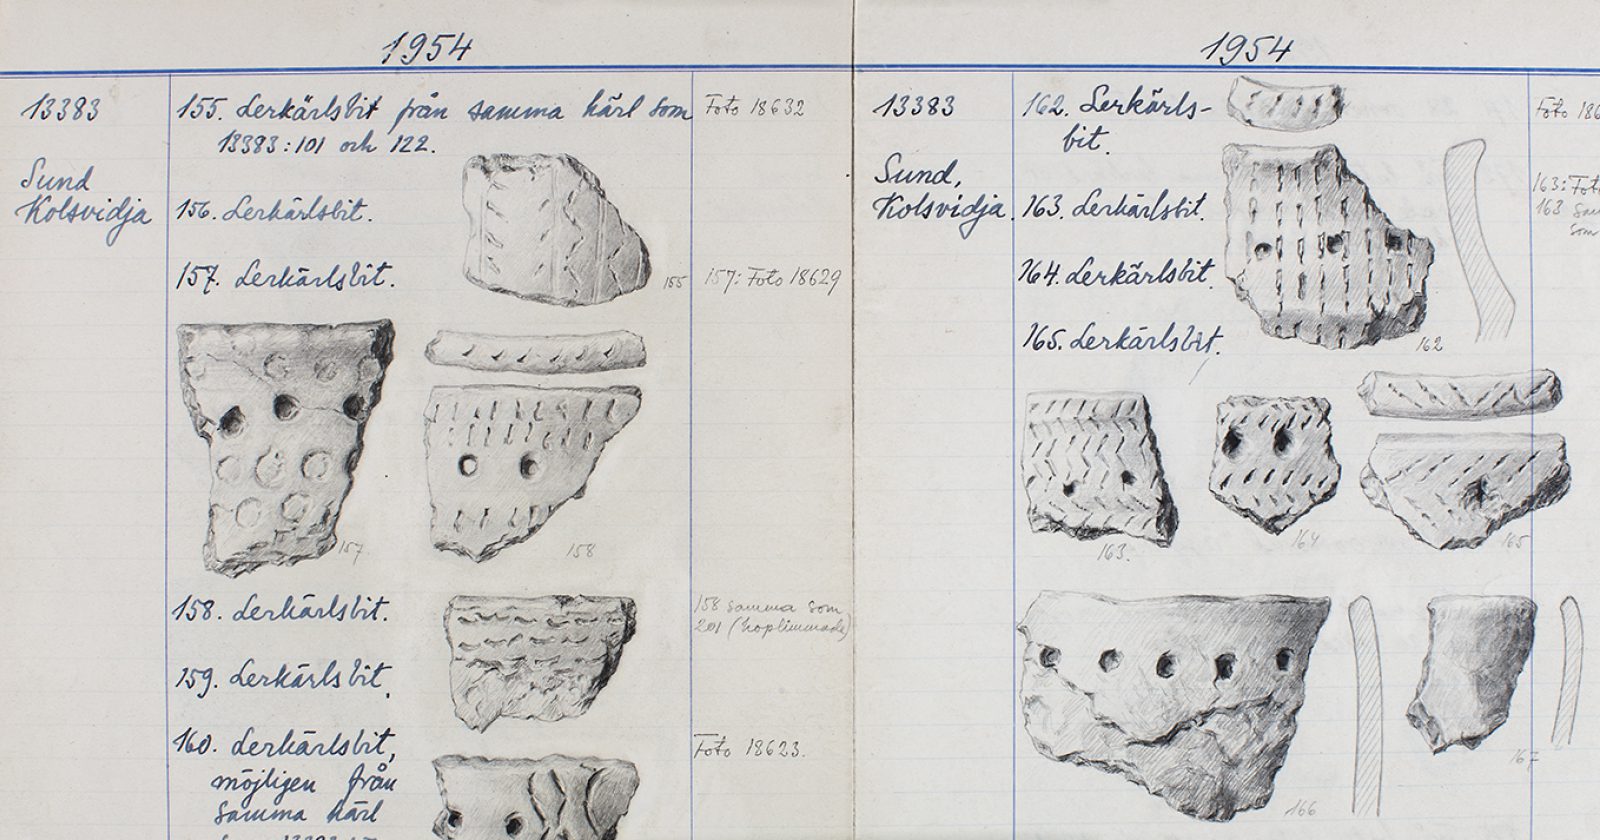 1954
13383
Sund
Kolsvidja
155. Lerkärlsbit från samma kärl som
13383:101 och 122.
Foto 18632
156. Lerkärlsbit.
157. Lerkärlsbit.
155
157: Foto 18629
157
158
158. Lerkärlsbit.
158 samma som
201 (hoplimmade)
159. Lerkärlsbit.
160. Lerkärlsbit,
möjligen från
samma kärl
Foto 18623.
1954
13383
Sund,
Kolsvidja.
162. Lerkärls-
bit.
Foto 186
163. Lerkärlsbit.
163: Foto
163 sam
som
164. Lerkärlsbit.
165. Lerkärlsbit.
162
163.
164
165
166
167